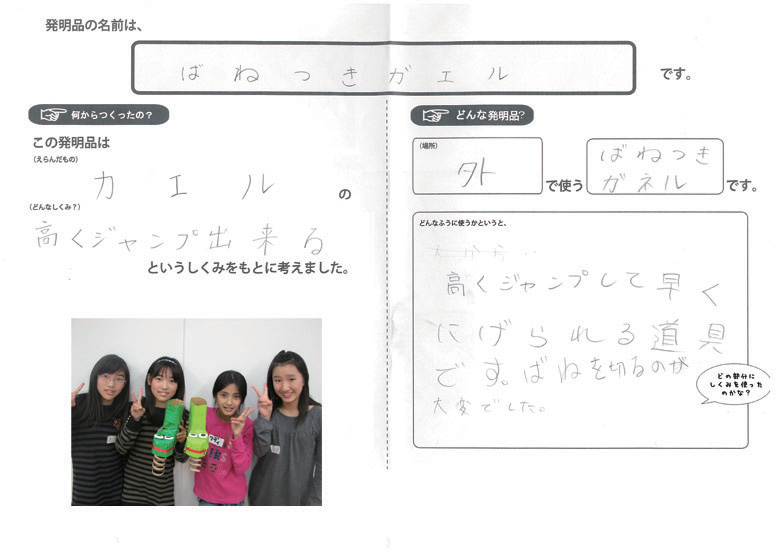 発明品の名前は、
ばねつきガエル
です。
何からつくったの?
この発明品は
(えらんだもの)
カエル
の
(どんなしくみ?)
高くジャンプ出来る
というしくみをもとに考えました。
どんな発明品?
(場所)
外
で使う
ばねつき
ガネル
です。
どんなふうに使うかというと、
高くジャンプして早く
にげられる道具
です。ばねを切るのが
大変でした。
どの部分に
しくみを使った
のかな?